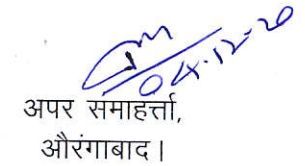 04.12.20
अपर समाहर्त्ता,
औरंगाबाद।